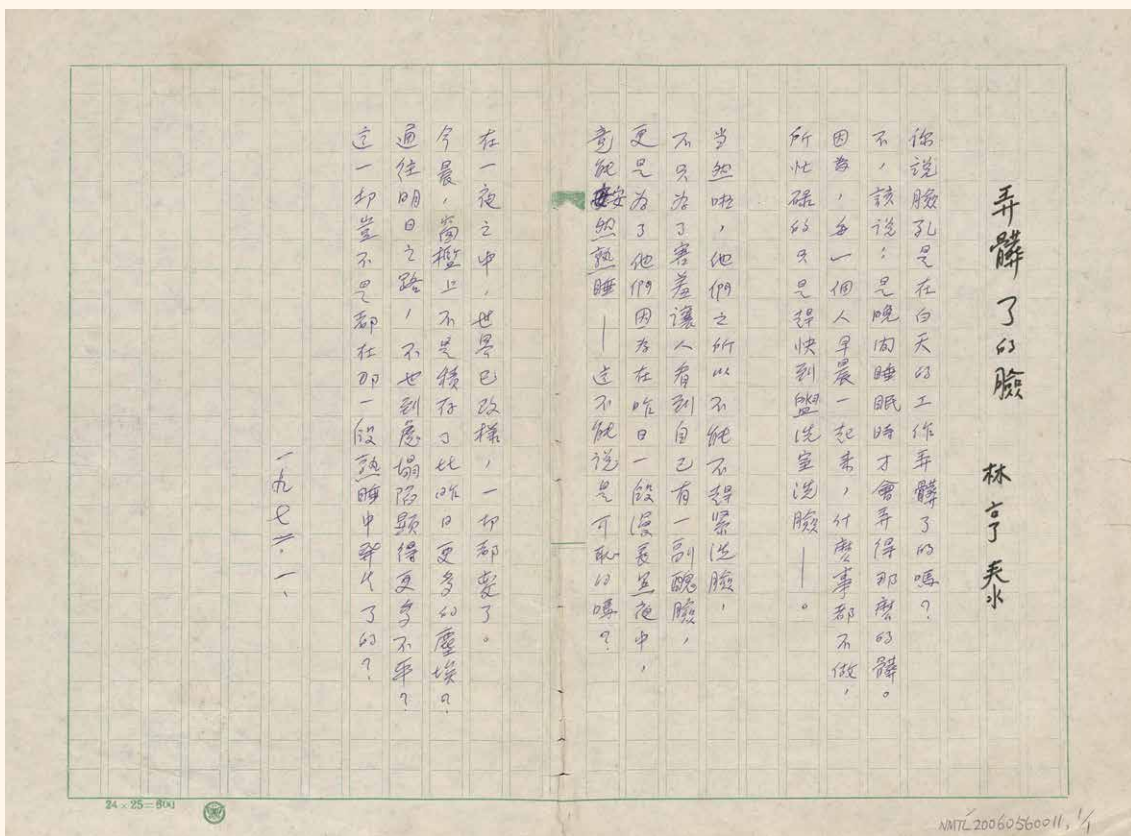 弄髒了的臉
林亨泰
你說臉孔是在白天的工作弄髒了的嗎？
不，該說：是晚间睡眠時才會弄得那麽的髒。
因為，每一個人早晨一起来，什麽事都不做，
所忙碌的只是趕快到盥洗室洗臉——。
当然啦，他們之所以不能不趕紧洗臉，
不只为了害羞讓人看到自己有一副醜臉，
更是为了他們因为在昨日一段漫長黑夜中，
竟能安然熟睡——这不能说是可恥的嗎？
在一夜之中，世界已改樣，一切都変了。
今晨，窗檻上不是積存了比昨日更多的塵埃？
通往明日之路，不也到處塌陷顕得更多不平？
这一切豈不是都在那一段熟睡中発生了的？
一九七二．一．
24×25=600
NMTL20060560011, 1/1